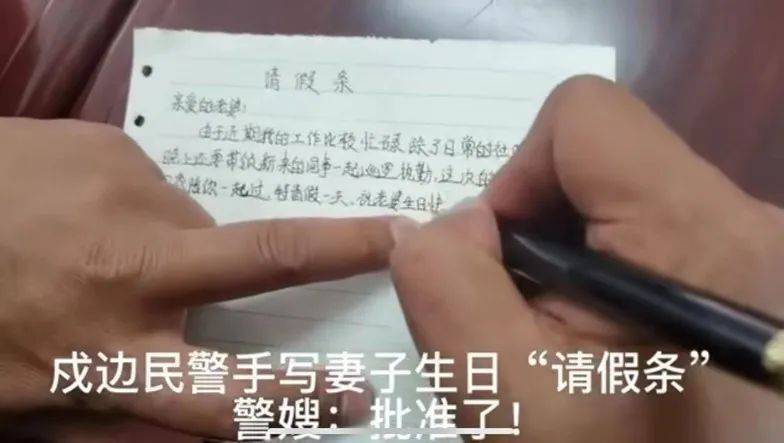 请假条
亲爱的老婆:
由于近期我的工作比较忙碌 除了日常的
晚上还要带领新来的同事一起巡罗执勤,这次的
陪你一起过,特请假一天,祝老婆生日快
戍边民警手写妻子生日“请假条”
警嫂:批准了!